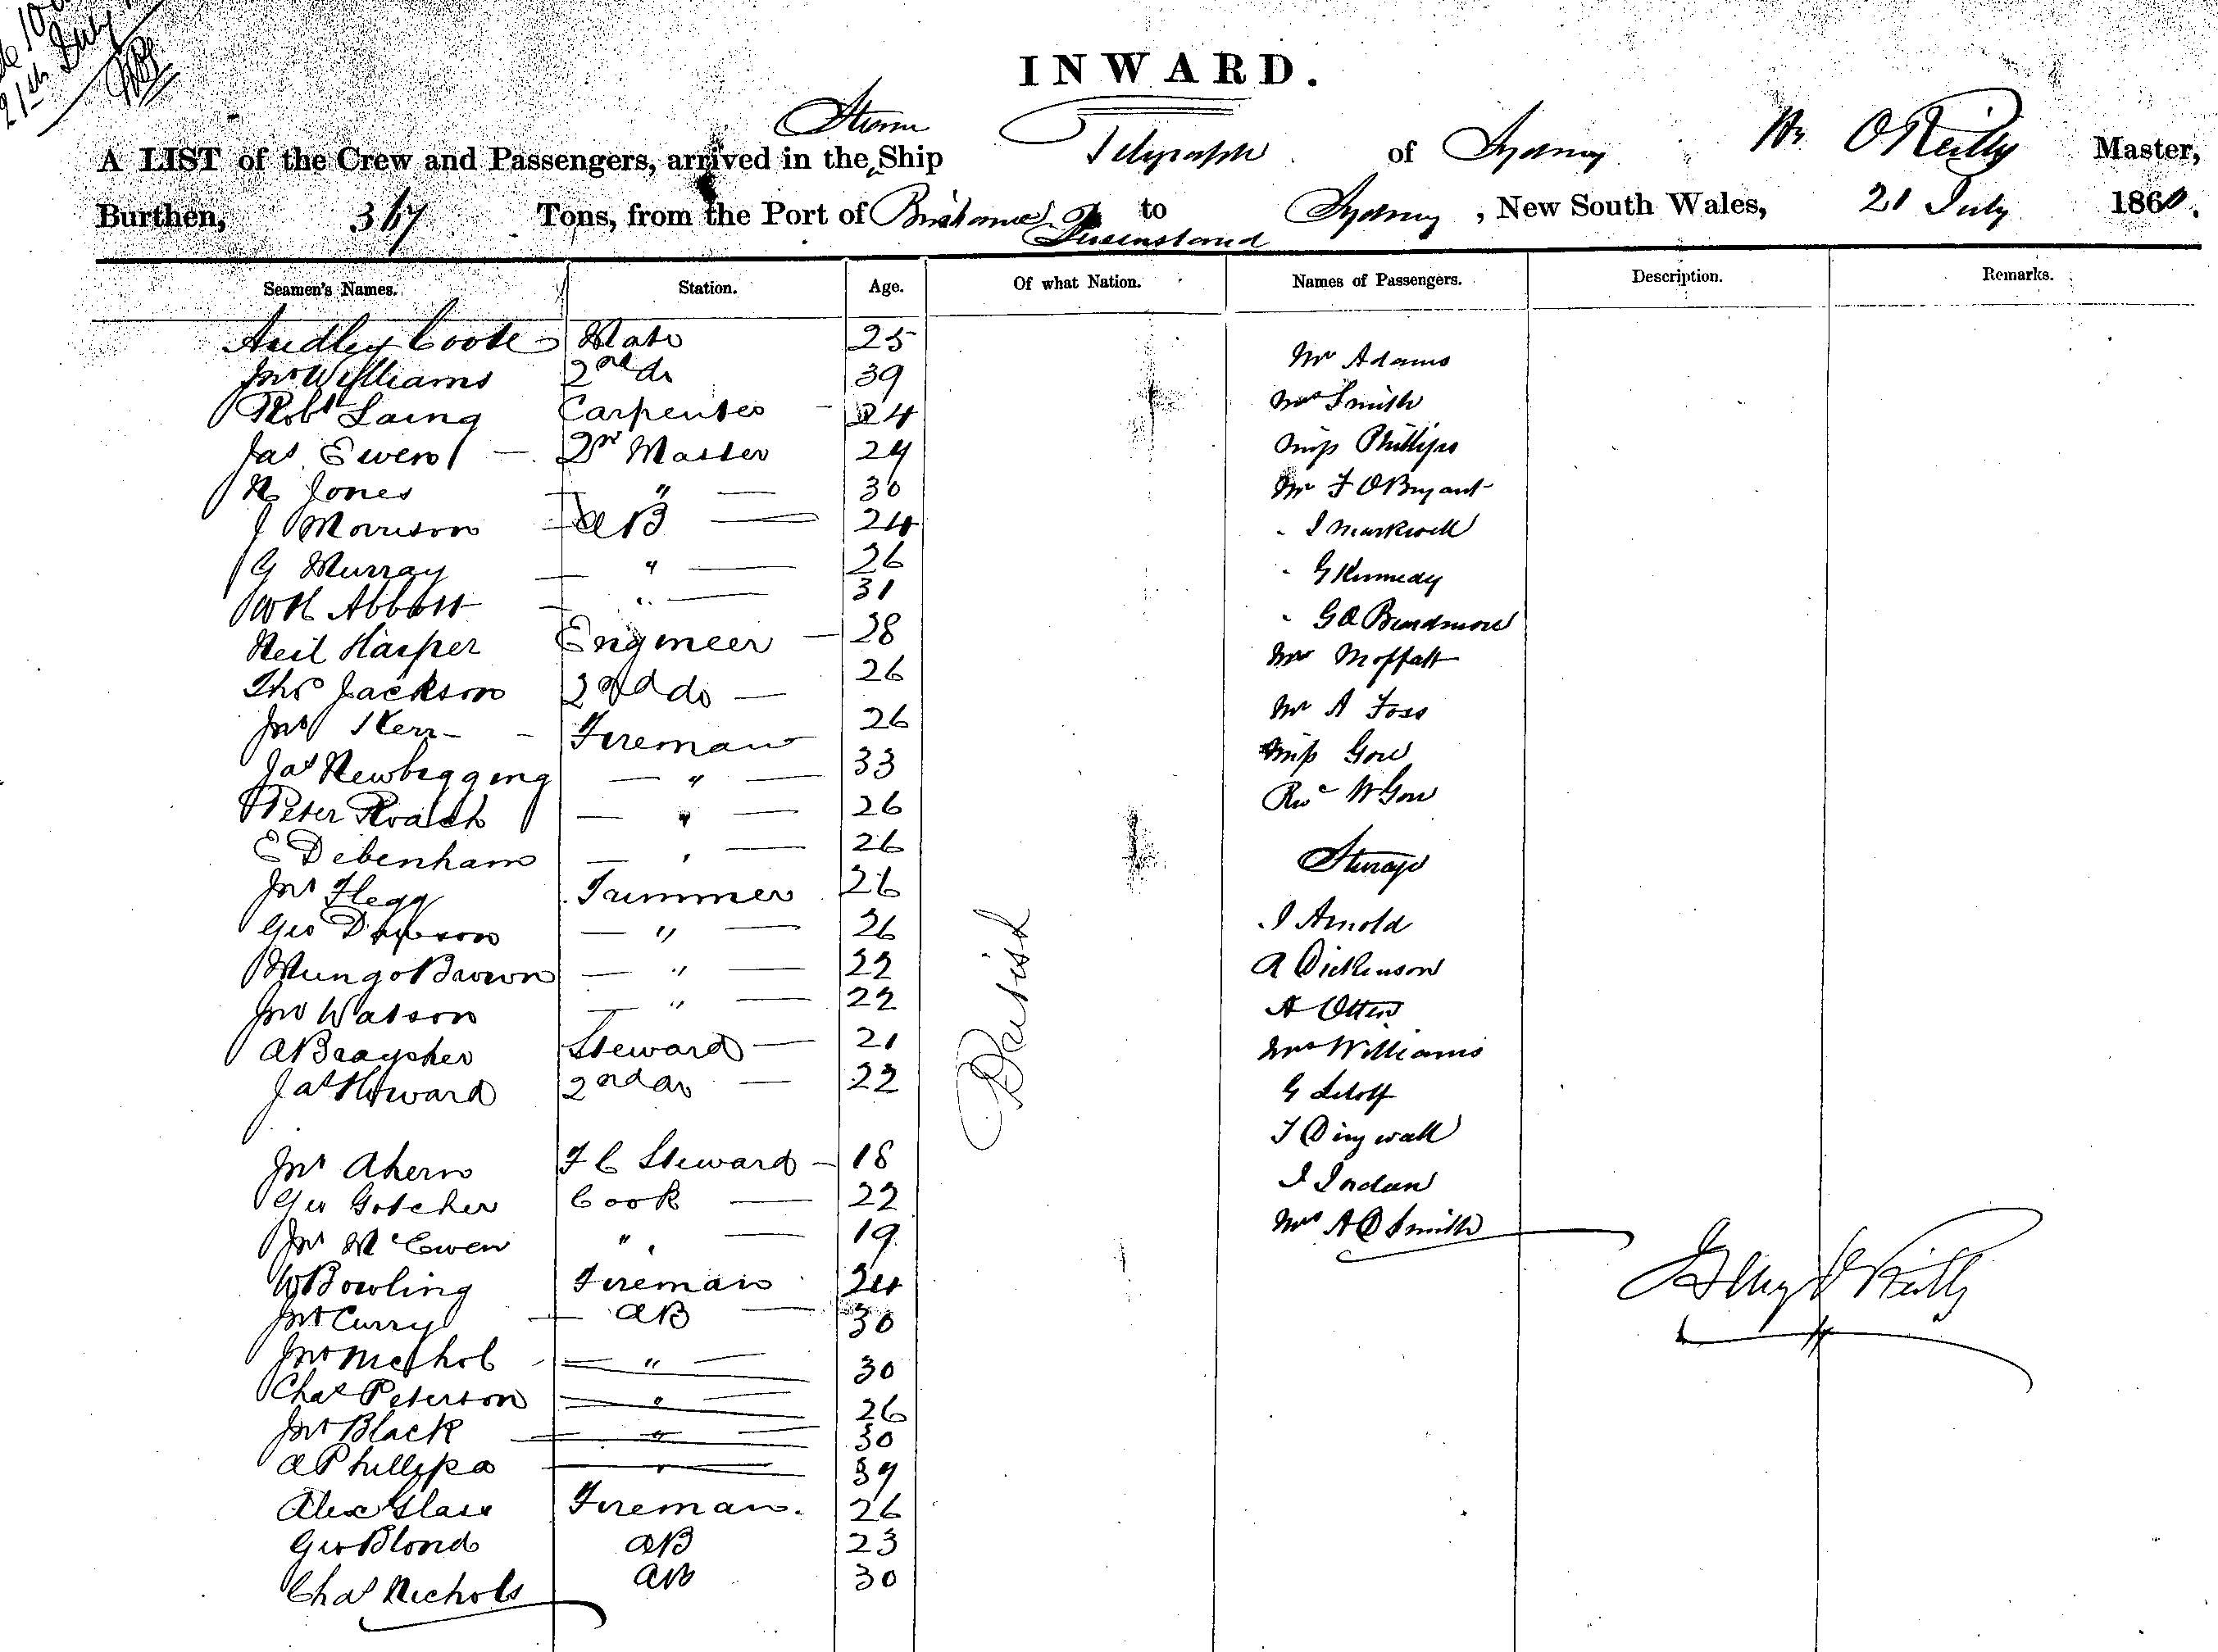 21st July
INWARD.
A LIST of the Crew and Passengers, arrived in the Steam Ship Telegraph of Sydney Hy O'Reilly Master,
Burthen, 367 Tons, from the Port of Brisbane Queensland to Sydney, New South Wales, 21 July 1860.
Seamen's Names. Station. Age. Of what Nation. Names of Passengers. Description. Remarks.
Audley Coote Mate 25
Jno Williams 2nd do 39
Robt Laing Carpenter 24
Jas Ewen 2r Master 24
R Jones " 30
J Morrison AB 24
G Murray " 26
WH Abbott " 31
Neil Harper Engineer 28
Thos Jackson 2nd do 26
Jno Kerr Fireman 26
Jas Newbigging " 33
Peter Roach " 26
E Debenham " 26
Jno Flegg Trimmer 26
Geo Dawson " 26
Mungo Brown " 22
Jno Watson " 22
A Braysher Steward 21
Jas Howard 2nd do 22
Jno Ahern F C Steward 18
Geo Gotcher Cook 22
Jno McEwen " 19
W Bowling Fireman 24
Jno Curry AB 30
Jno Nichol " 30
Chas Peterson " 26
Jno Black " 30
A Phillips " 39
Alex Glass Fireman 26
Geo Blond AB 23
Chas Nichols AB 30
British
Mr Adams
Mrs Smith
Miss Phillips
Mr F O Bryant
" J Markwell
" G Kennedy
" G A Beardmore
Mr Moffatt
Mr A Foss
Miss Gow
Revd W Gow
Steerage
J Arnold
A Dickinson
A Otten
Mrs Williams
G
T Dingwall
J Jordan
Mrs A D Smith
Hy O'Reilly